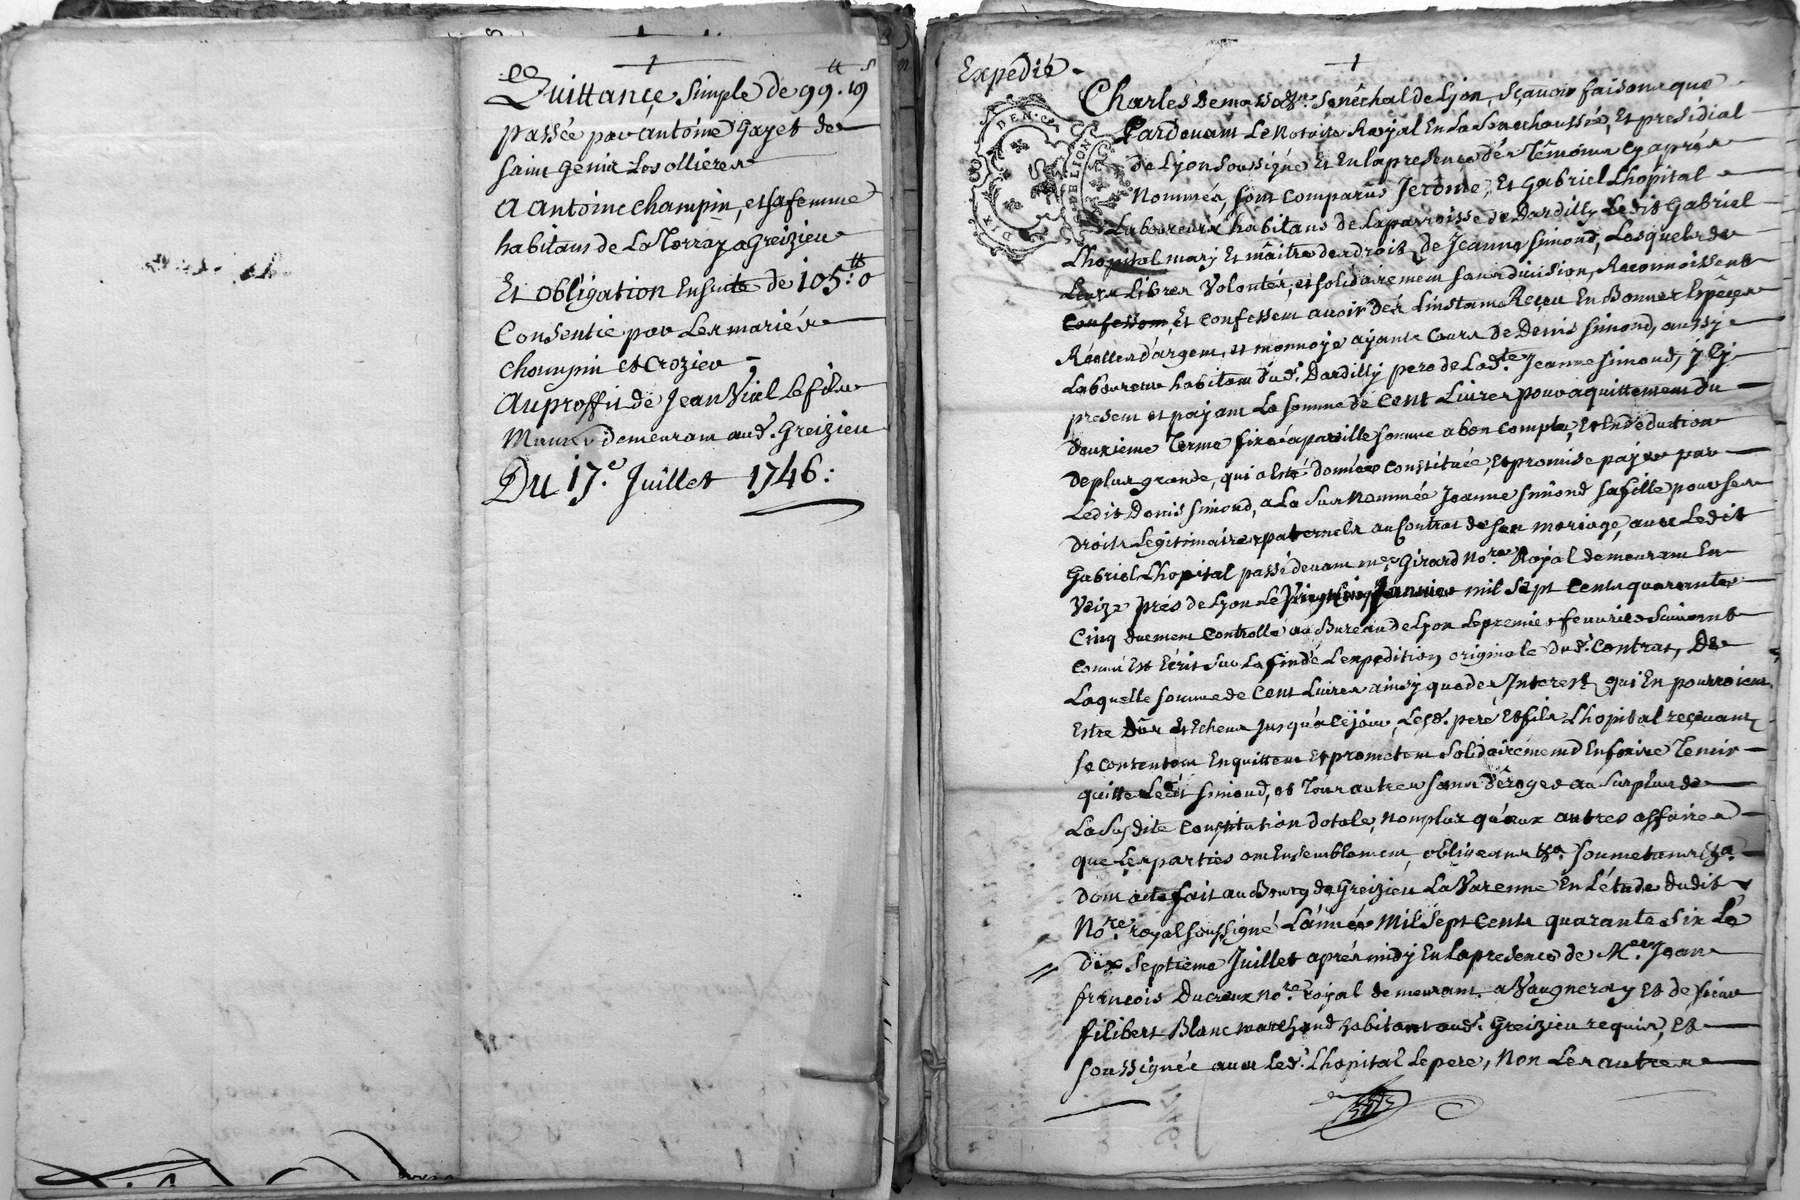 Quittance simple de 99.# 19 s
passée par antoine Gayet de
saint Genis Les ollieres
a antoine champin, et sa femme
habitans de La Torray a Greizieu
Et obligation Ensuite de 105:# 0
Consentie par Les mariés
champin et crozier
au proffit de Jean Vial Le fils
demeurant aud.t Greizieu
Du 17.e Juillet 1746:
Expedié
Charles De masso &a. Senêchal de Lyon, sçavoir faisons que
Pardevant Le Notaire Royal En La Senechaussée, Et presidial
de Lyon soussigné Et En la presence des Têmoins cy aprés
Nommés, sont comparus Jerôme, Et Gabriel Lhopital
Laboureurs habitans de La parroisse de Dardilly Ledit Gabriel
Lhopital mary Et maître des droits de Jeanne Simond, Lesquels de
Leurs Libres Volontés, et solidairement sans division, Reconnoissent
Confessent, Et confessent avoir dés Linstant Reçu En Bonnes Espéces
Réelles d'argent, et monnoye ayants Cours de Denis Simond, aussy
Laboureur habitant dud.t Dardilly pere de Lad.te Jeanne Simond, jcy
present et payant La somme de Cent Livres pour aquittement du
deuxieme Terme fixé a pareille somme a bon compte, Et En déduction
de plus grande, qui a Eté donnée constituée, Et promise payer par
Ledit Denis Simond, a La sus Nommée Jeanne Simond sa fille pour ses
droits Legitimaires paternels au Contrat de son mariage, avec Ledit
Gabriel Lhopital passé devant me. Girard No.re Royal demeurant En
Vaize prés de Lyon Le Vingt Cinq Janvier mil sept Cents quarante
Cinq duement Controllé au Bureau de Lyon Le premier fevrier suivant
comm'Est Ecrit sur La fin dé Lexpedition originale dud.t Contrat, De
Laquelle somme de Cent Livres ainsy que des Interest qui En pourroient
Estre Dûs Et Echeus jusqu'a ce jour, Lesd.t pere Et fils Lhopital recevants
se contentent En quittent Et promettent solidairement d'En faire Tenir
quitte Ledit Simond, et Tous autres sans dêroger au surplus de
La susdite Constitution dotale, non plus qu'aux autres affaires
que Les parties ont Ensemblement, obligeants &a. soumetants &a.
Dont acte fait au Bourg de Greizieu La Varenne En L'étude dudit
No.re royal soussigné L'année Mil sept Cents quarante six Le
dix septieme Juillet aprés midy En La presence de M.e Jean
francois Ducreux no.re royal demeurant a Vaugneray Et de sieur
filibert Blanc marchand habitant aud.t Greizieu requis, Et
soussignés avec Led.t Lhopital Le pere, Non Les autres